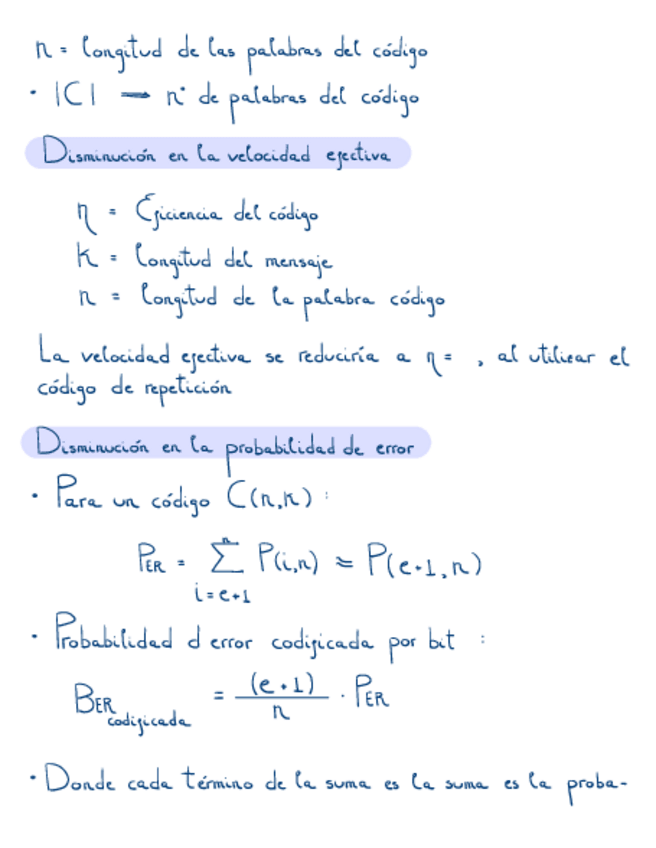 n = longitud de las palabras del código
• |C| → nº de palabras del código
Disminución en la velocidad efectiva
η = Eficiencia del código
k = longitud del mensaje
n = longitud de la palabra código
La velocidad efectiva se reduciría a η = , al utilizar el
código de repetición
Disminución en la probabilidad de error
• Para un código C(n,k) :
PER = n∑i=e+1 P(i,n) ≈ P(e+1,n)
• Probabilidad d error codificada por bit :
BER codificada = (e+1)/n · PER
• Donde cada término de la suma es la suma es la proba-